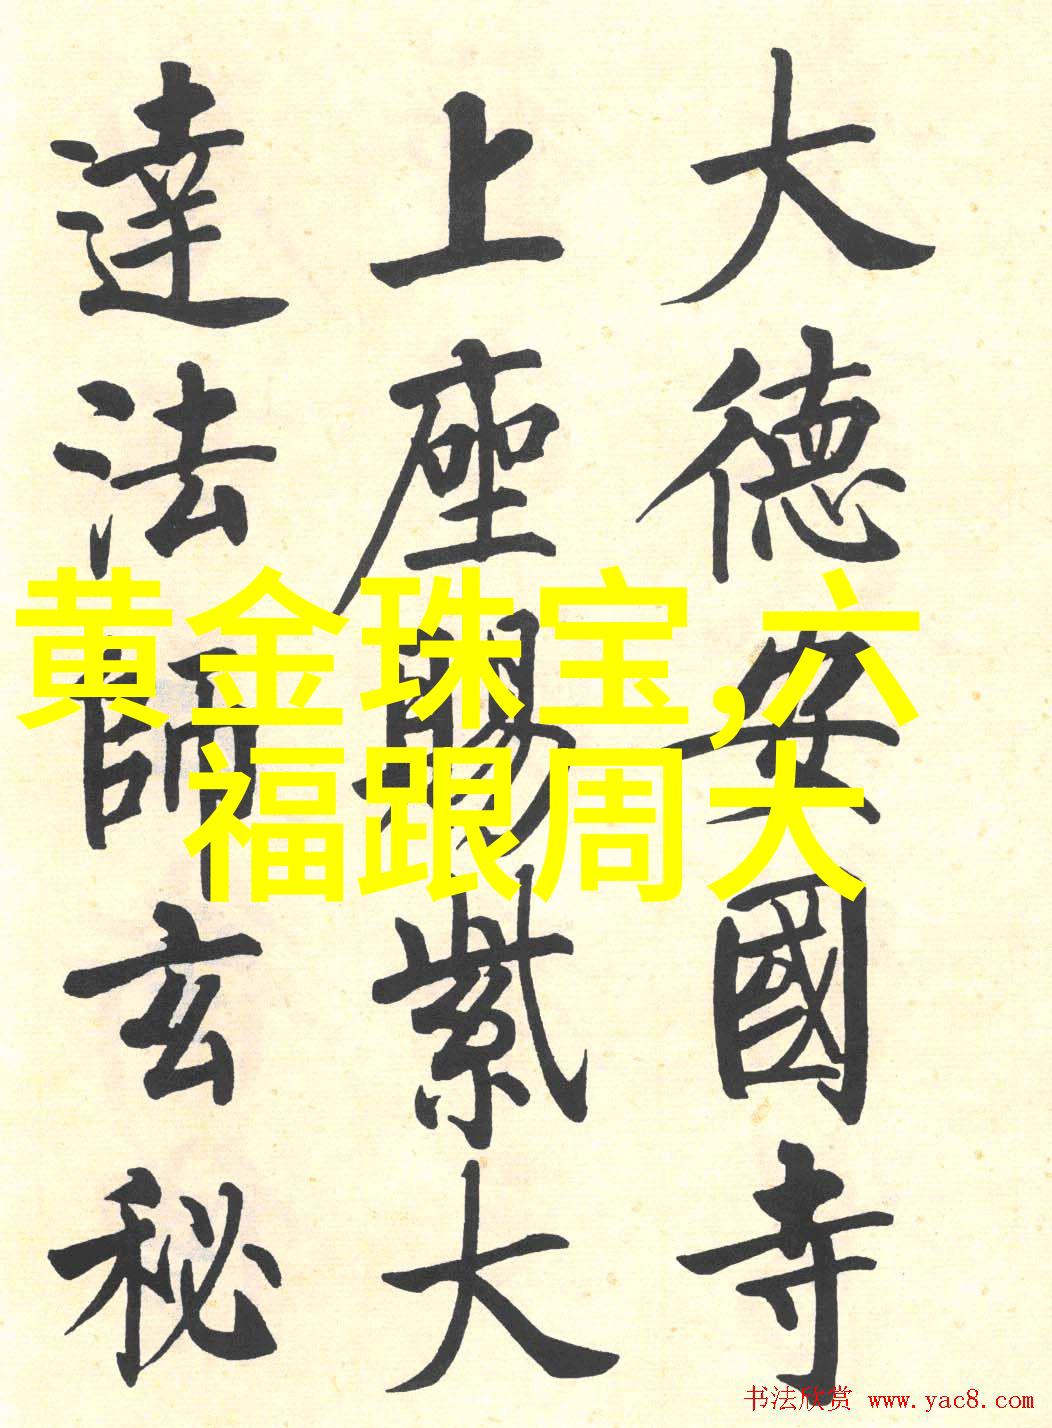 大德安國寺
上座賜紫大
達法師玄秘
黄金珠宝,六
福跟周大
书法欣赏 www.yac8.com